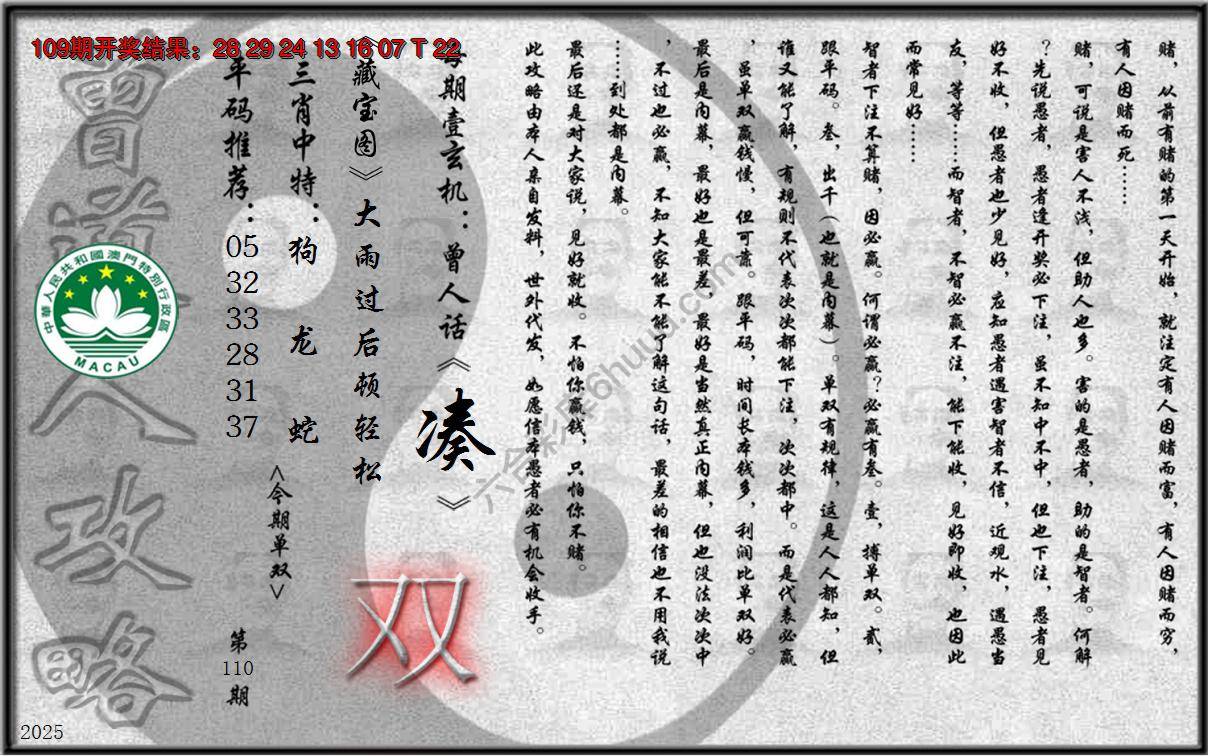 109期开奖结果：28 29 24 13 16 07 T 22
赌，从前有赌的第一天开始，就注定有人因赌而富，有人因赌而穷，
有人因赌而死……
赌，可说是害人不浅，但助人也多。害的是愚者，助的是智者。何解
？先说愚者，愚者逢开奖必下注，虽不知中不中，但也下注，愚者见
好不收，但愚者也少见好，应知愚者遇害智者不信，近观水，遇愚当
友，等等……而智者，不智必赢不注，能下能收，见好即收，也因此
而常见好……
智者下注不算赌，因必赢。何谓必赢？必赢有叁。壹，搏单双。贰，
跟平码。叁，出千（也就是内幕）。单双有规律，这是人人都知，但
谁又能了解，有规则不代表次次都能下注，次次都中。而是代表必赢
，虽单双赢钱慢，但可靠。跟平码，时间长本钱多，利润比单双好。
最后是内幕，最好也是最差，最好是当然真正内幕，但也没法次次中
，不过也必赢，不知大家能不能了解这句话，最差的相信也不用我说
……到处都是内幕。
最后还是对大家说，见好就收。不怕你赢钱，只怕你不赌。
此攻略由本人亲自发料，世外代发，如愿信本愚者必有机会收手。
每期壹玄机：曾人话《凑》
《藏宝图》大雨过后顿轻松
双
三肖中特：狗 龙 蛇
<今期单双>
平码推荐：05 32 33 28 31 37
第110期
曾道人攻略
中華人民共和國澳門特別行政區
MACAU
六合彩库6huua.com
2025